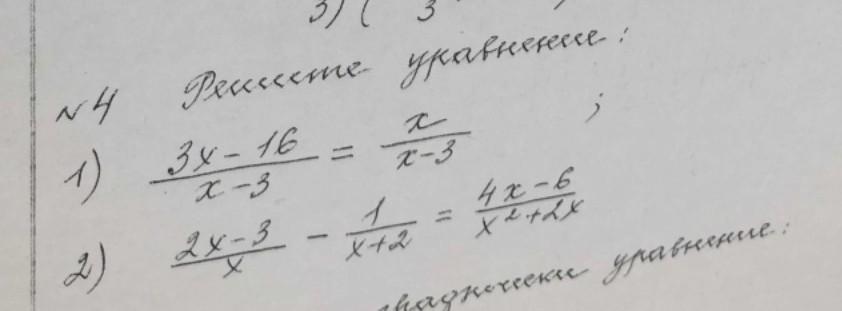 3) ( 3
№4 Решите уравнение:
1) \frac{3x-16}{x-3} = \frac{x}{x-3} ;
2) \frac{2x-3}{x} - \frac{1}{x+2} = \frac{4x-6}{x^2+2x}
уравнение: